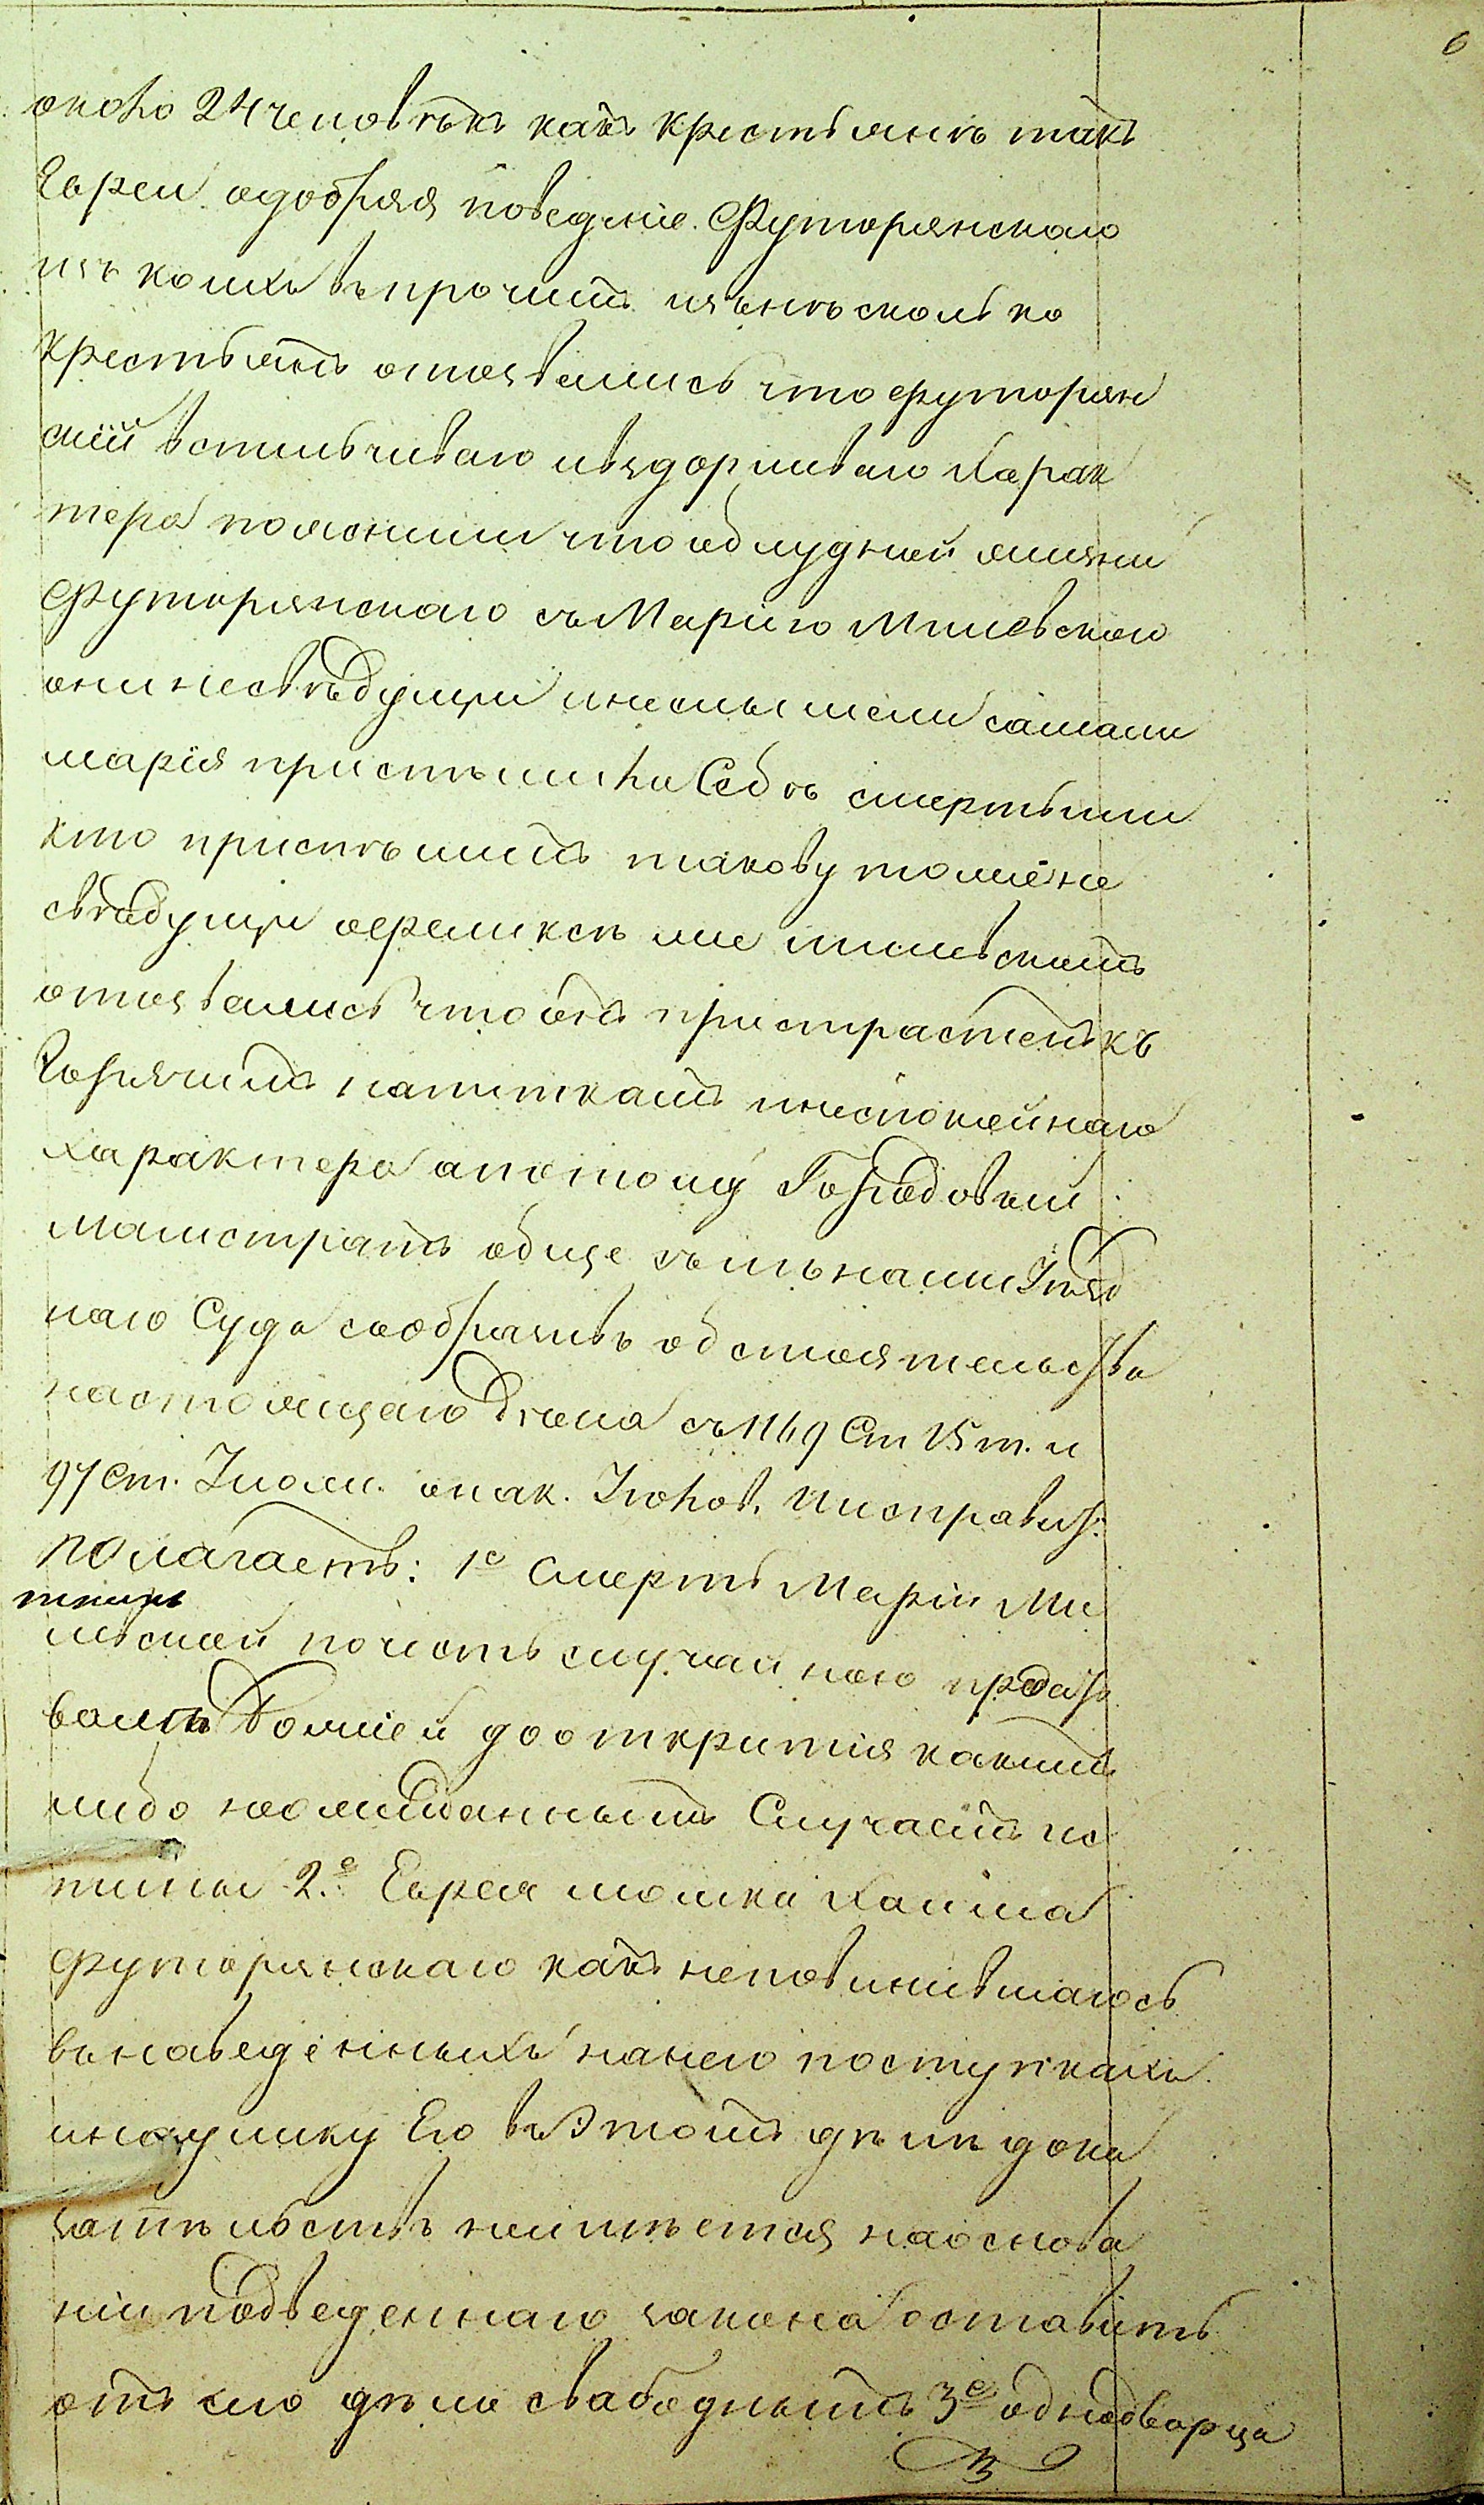 6
около 24 человѣкъ какъ крестьянъ такъ
Евреи одобряя поведеніе Футорянскаго
изъ коихъ впрочемъ изънѣсколько
крестьянъ отозвались что футорян
скій вспыльчиваго ивздорливаго харак
тера пояснили что облудной жизни
Футорянскаго съ Маріею Милевскою
они несвѣдущи инеслышели самали
марія приспѣшила Себѣ смерть или
кто приспѣшилъ таковую тоже не
свѣдущи оереликсѣ же милевскомъ
отозвались что онъ пристрастенъ къ
Горячимъ напиткамъ инеспокойнаго
характера апотому Городовый
магистратъ обще съ членами Уѣзд
наго Суда сообразивъ обстоятельства
настоящаго дѣла съ 1169 Ст 15 т. и
97 Ст. Улож. онак. Уголов. иисправит:
полагаетъ: 1е Смерть Маріи Ми
левской почесть случайною предать
волѣ Божіей дооткритія какимъ
либо неожиданнымъ Случаемъ ис
тины 2.е Еврея мошка Хаима
футорянскаго какъ неповинившагось
вънаведенныхъ нанего поступкахъ
инаулику Его въ Этомъ дѣлѣ дока
зательствъ неимѣется наоснова
ніи подведеннаго закона оставить
отъ сего дѣла свабоднымъ 3е однодворца